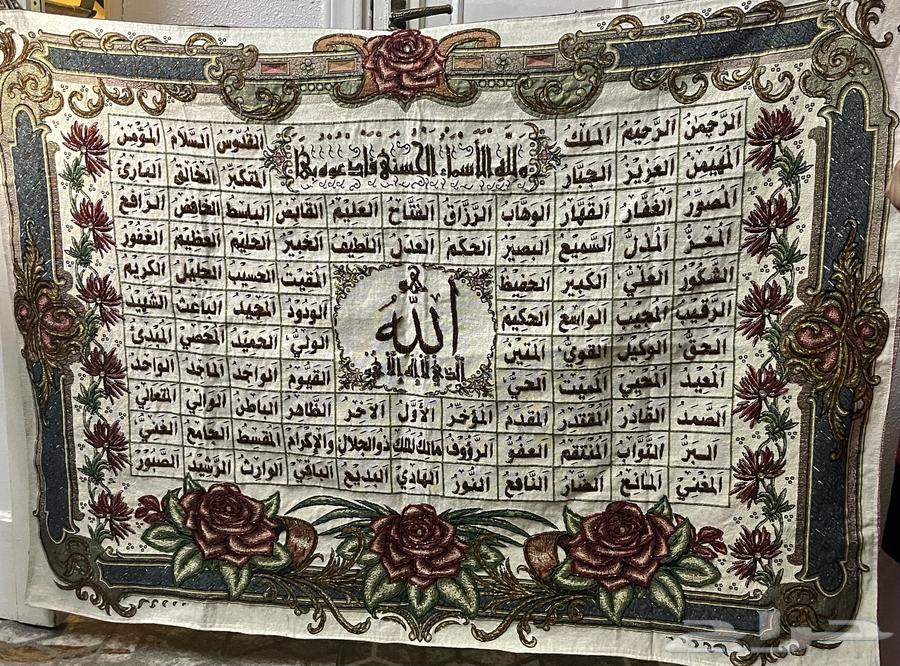 الرَّحْمٰنُ الرَّحِيْمُ المَلِكُ القُدُّوْسُ السَّلَامُ المُؤْمِنُ
ولله الأسماء الحسنى فادعوه بها
المهيمن العزيز الجبار المتكبر الخالق البارئ
المصور الغفار القهار الوهاب الرزاق الفتاح العليم القابض الباسط الخافض الرافع
المعز المذل السميع البصير الحكم العدل اللطيف الخبير الحليم العظيم الغفور
الشكور العلي الكبير الحفيظ المقيت الحسيب الجليل الكريم
هو
الله
الذي لا إله إلا هو
الرقيب المجيب الواسع الحكيم الودود المجيد الباعث الشهيد
الحق الوكيل القوي المتين الولي الحميد المحصي المبدئ
المعيد المحيي المميت الحي القيوم الواجد الماجد الواحد
الصمد القادر المقتدر المقدم المؤخر الأول الآخر الظاهر الباطن الوالي المتعالي
البر التواب المنتقم العفو الرؤوف مالك الملك ذو الجلال والإكرام المقسط الجامع الغني
المغني المانع الضار النافع النور الهادي البديع الباقي الوارث الرشيد الصبور
حراج